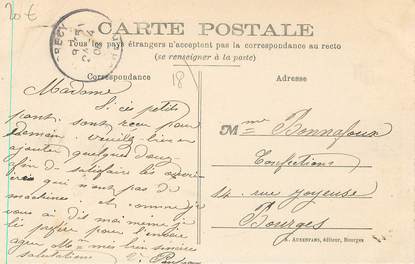 20 €
CARTE POSTALE
Tous les pays étrangers n'acceptent pas la correspondance au recto
(se renseigner à la poste)
Correspondance
Adresse
18
CRECY
Madame
Si ces petits
sont reçu pour
demain veuillez bien en
ajouter quelques douz
afin de satisfaire les ouvriè
qui n'ont pas de
machines et comme je
vous ai dit moi même je
les préfère pour l'envoi
Mme mes bien sincères
salutations
Mme Bonnafoux
Confections
14 rue Joyeuse
Bourges
A. AUXENFANS, éditeur, Bourges